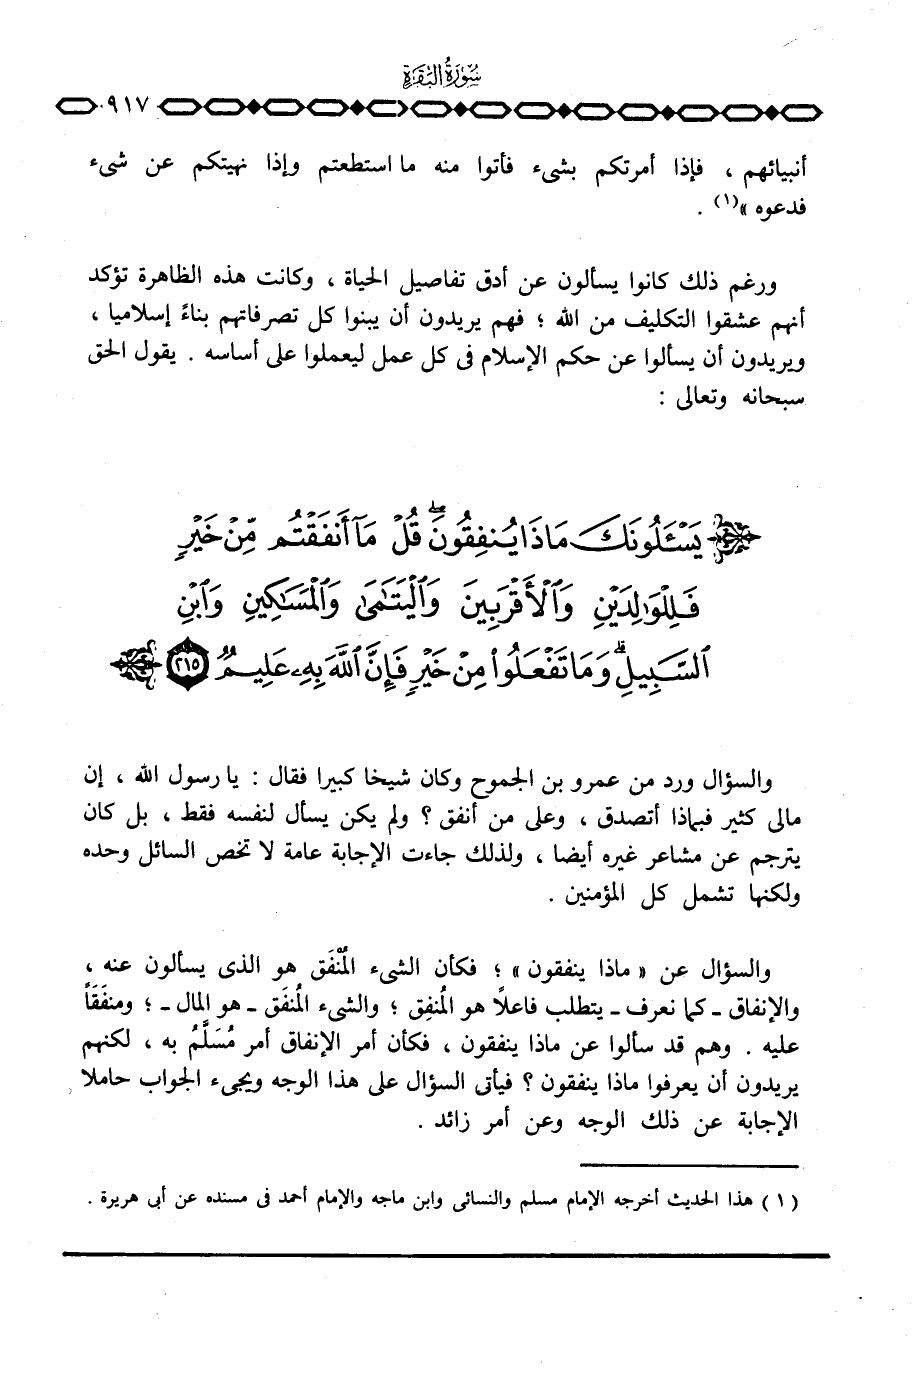 سُورَةُ البَقَرَةِ
٩١٧
أنبيائهم ، فإذا أمرتكم بشىء فأتوا منه ما استطعتم وإذا نهيتكم عن شىء
فدعوه »(١) .
ورغم ذلك كانوا يسألون عن أدق تفاصيل الحياة ، وكانت هذه الظاهرة تؤكد
أنهم عشقوا التكليف من الله ؛ فهم يريدون أن يبنوا كل تصرفاتهم بناءً إسلاميا ،
ويريدون أن يسألوا عن حكم الإسلام فى كل عمل ليعملوا على أساسه . يقول الحق
سبحانه وتعالى :
يَسْـَٔلُونَكَ مَاذَا يُنفِقُونَ ۖ قُلْ مَآ أَنفَقْتُم مِّنْ خَيْرٍ
فَلِلْوَٰلِدَيْنِ وَٱلْأَقْرَبِينَ وَٱلْيَتَٰمَىٰ وَٱلْمَسَٰكِينِ وَٱبْنِ
ٱلسَّبِيلِ ۗ وَمَا تَفْعَلُوا۟ مِنْ خَيْرٍ فَإِنَّ ٱللَّهَ بِهِۦ عَلِيمٌ ٢١٥
والسؤال ورد من عمرو بن الجموح وكان شيخا كبيرا فقال : يا رسول الله ، إن
مالى كثير فبماذا أتصدق ، وعلى من أنفق ؟ ولم يكن يسأل لنفسه فقط ، بل كان
يترجم عن مشاعر غيره أيضا ، ولذلك جاءت الإجابة عامة لا تخص السائل وحده
ولكنها تشمل كل المؤمنين .
والسؤال عن « ماذا ينفقون » ؛ فكأن الشىء المُنْفَق هو الذى يسألون عنه ،
والإنفاق ـ كما نعرف ـ يتطلب فاعلاً هو المُنفِق ؛ والشىء المُنفَق ـ هو المال ـ ؛ ومنفَقاً
عليه . وهم قد سألوا عن ماذا ينفقون ، فكأن أمر الإنفاق أمر مُسَلَّمُ به ، لكنهم
يريدون أن يعرفوا ماذا ينفقون ؟ فيأتى السؤال على هذا الوجه ويجىء الجواب حاملا
الإجابة عن ذلك الوجه وعن أمر زائد .
( ١ ) هذا الحديث أخرجه الإمام مسلم والنسائى وابن ماجه والإمام أحمد فى مسنده عن أبى هريرة .